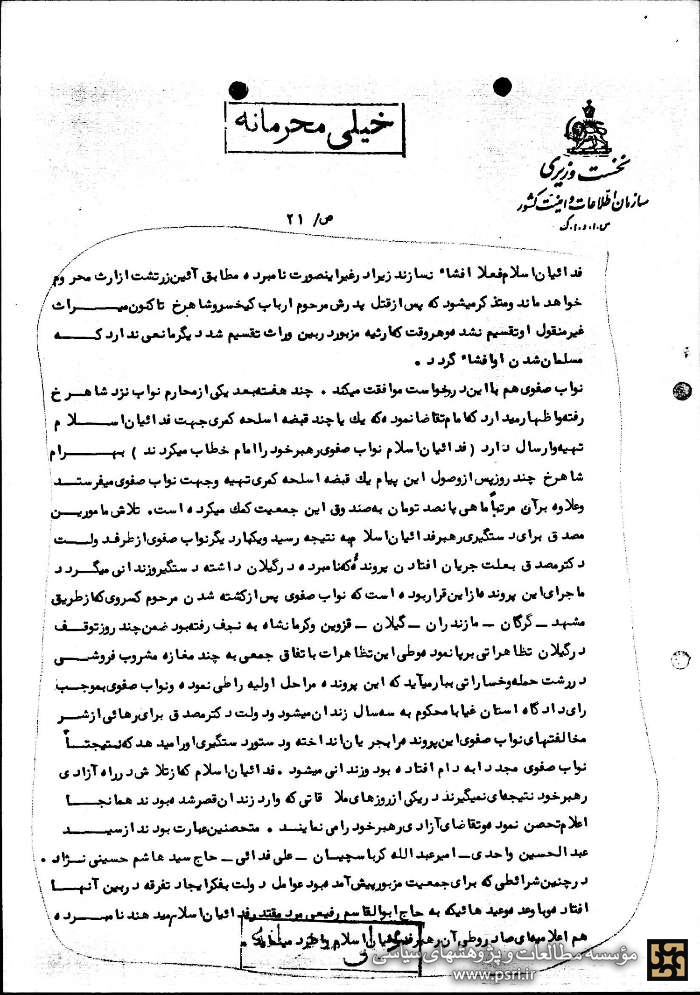 خیلی محرمانه
نخست وزیری
سازمان اطلاعات و امنیت کشور
س.ا.و.ا.ک
ص/ ۲۱
فدائیان اسلام فعلا افشاء نسازند زیرا در غیر اینصورت نامبرده مطابق آئین زرتشت از ارث محروم
خواهد ماند و متذکر میشود که پس از قتل پدرش مرحوم ارباب کیخسرو شاهرخ تاکنون میراث
غیر منقول او تقسیم نشده و هر وقت که ارثیه مزبور در بین وراث تقسیم شد دیگر مانعی ندارد که
مسلمان شدن او افشاء گردد .
نواب صفوی هم با این درخواست موافقت میکند . چند هفته بعد یکی از محارم نواب نزد شاهرخ
رفته و اظهار میدارد که امام تقاضا نموده که یك یا چند قبضه اسلحه کمری جهت فدائیان اسلام
تهیه و ارسال دارد ( فدائیان اسلام نواب صفوی رهبر خود را امام خطاب میکردند ) بهرام
شاهرخ چند روز پس از وصول این پیام یك قبضه اسلحه کمری تهیه و جهت نواب صفوی میفرستد
و علاوه بر آن مرتباً ماهی پانصد تومان به صندوق این جمعیت کمك میکرده است. تلاش مامورین
مصدق برای دستگیری رهبر فدائیان اسلام به نتیجه رسید و یکبار دیگر نواب صفوی از طرف دولت
دکتر مصدق بعلت جریان افتادن پرونده که نامبرده در گیلان داشته دستگیر و زندانی میگردد
ماجرای این پرونده از این قرار بوده است که نواب صفوی پس از کشته شدن مرحوم کسروی که از طریق
مشهد - گرگان - مازندران - گیلان - قزوین و کرمانشاه به نجف رفته بود ضمن چند روز توقف
در گیلان تظاهراتی برپا نموده و طی این تظاهرات با تفاق جمعی به چند مغازه مشروب فروشی
در رشت حمله و خساراتی ببار میآید که این پرونده مراحل اولیه را طی نموده و نواب صفوی بموجب
رای دادگاه استان غیابا محکوم به سه سال زندان میشود و دولت دکتر مصدق برای رهائی از شر
مخالفتهای نواب صفوی این پرونده را بجریان انداخته و دستور دستگیری او را میدهد که نتیجتاً
نواب صفوی مجددا به دام افتاده بود و زندانی میشود . فدائیان اسلام که از تلاش در راه آزادی
رهبر خود نتیجه‌ای نمیگیرند در یکی از روزهای ملاقاتی که وارد زندان قصر شده بودند همانجا
اعلام تحصن نموده و تقاضای آزادی رهبر خود را می نمایند . متحصنین عبارت بودند از سید
عبدالحسین واحدی - امیر عبدالله کرباسچیان - علی فدائی - حاج سید هاشم حسینی نژاد .
در چنین شرائطی که برای جمعیت مزبور پیش آمده بود عوامل دولت بفکر ایجاد تفرقه در بین آنها
افتاده و با وعد و عید هائیکه به حاج ابوالقاسم رفیعی مرد مقتدر فدائیان اسلام میدهند نامبرده
هم اعلامیه‌ای صادر و طی آن رهبر فدائیان اسلام را طرد مینماید .
مؤسسه مطالعات و پژوهشهای سیاسی
www.psri.ir